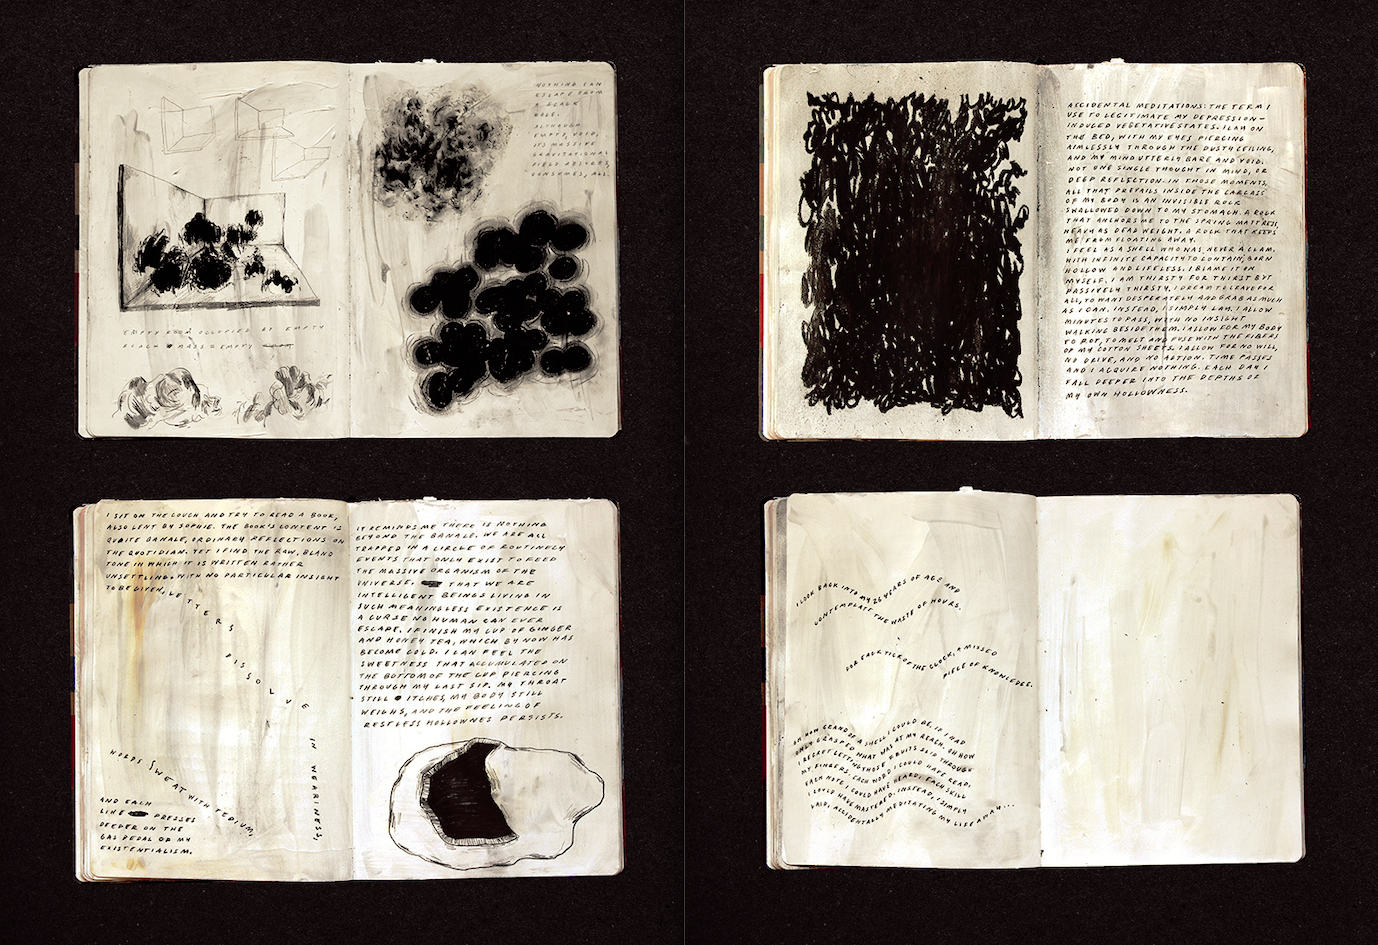 EMPTY ROOM OCCUPIED BY EMPTY
BLACK MASS = EMPTY
NOTHING CAN
ESCAPE FROM
A BLACK
HOLE.
ALTHOUGH
EMPTY, VOID,
ITS MASSIVE
GRAVITATIONAL
FIELD ABSORBS,
CONSUMES, ALL.
ACCIDENTAL MEDITATIONS: THE TERM I
USE TO LEGITIMATE MY DEPRESSION-
INDUCED VEGETATIVE STATES. I LAY ON
THE BED, WITH MY EYES PIERCING
AIMLESSLY THROUGH THE DUSTY CEILING,
AND MY MIND UTTERLY BARE AND VOID.
NOT ONE SINGLE THOUGHT IN MIND, OR
DEEP REFLECTION. IN THOSE MOMENTS,
ALL THAT PREVAILS INSIDE THE CARCASS
OF MY BODY IS AN INVISIBLE ROCK
SWALLOWED DOWN TO MY STOMACH. A ROCK
THAT ANCHORS ME TO THE SPRING MATTRESS,
HEAVY AS DEAD WEIGHT. A ROCK THAT KEEPS
ME FROM FLOATING AWAY.
I FEEL AS A SHELL WHO WAS NEVER A CLAM.
WITH INFINITE CAPACITY TO CONTAIN, BORN
HOLLOW AND LIFELESS. I BLAME IT ON
MYSELF. I AM THIRSTY FOR THIRST BUT
PASSIVELY THIRSTY. I DREAM TO CRAVE FOR
ALL, TO WANT DESPERATELY AND GRAB AS MUCH
AS I CAN. INSTEAD, I SIMPLY LAY. I ALLOW
MINUTES TO PASS, WITH NO INSIGHT
WALKING BESIDE THEM. I ALLOW FOR MY BODY
TO ROT, TO MELT AND FUSE WITH THE FIBERS
OF MY COTTON SHEETS. I ALLOW FOR NO WILL,
NO DRIVE, AND NO ACTION. TIME PASSES
AND I ACQUIRE NOTHING. EACH DAY I
FALL DEEPER INTO THE DEPTHS OF
MY OWN HOLLOWNESS.
I SIT ON THE COUCH AND TRY TO READ A BOOK,
ALSO LENT BY SOPHIE. THE BOOK'S CONTENT IS
QUOITE BANALE, ORDINARY REFLECTIONS ON
THE QUOTIDIAN. YET I FIND THE RAW, BLAND
TONE IN WHICH IT IS WRITTEN RATHER
UNSETTLING. WITH NO PARTICULAR INSIGHT
TO BE GIVEN, LETTERS
DISSOLVE
IN WEARINESS,
WORDS SWEAT WITH TEDIUM,
AND EACH
LINE PRESSES
DEEPER ON THE
GAS PEDAL OF MY
EXISTENTIALISM.
IT REMINDS ME THERE IS NOTHING
BEYOND THE BANALE. WE ARE ALL
TRAPPED IN A CIRCLE OF ROUTINELY
EVENTS THAT ONLY EXIST TO FEED
THE MASSIVE ORGANISM OF THE
UNIVERSE. THAT WE ARE
INTELLIGENT BEINGS LIVING IN
SUCH MEANINGLESS EXISTENCE IS
A CURSE NO HUMAN CAN EVER
ESCAPE. I FINISH MY CUP OF GINGER
AND HONEY TEA, WHICH BY NOW HAS
BECOME COLD. I CAN FEEL THE
SWEETNESS THAT ACCUMULATED ON
THE BOTTOM OF THE CUP PIERCING
THROUGH MY LAST SIP. MY THROAT
STILL ITCHES, MY BODY STILL
WEIGHS, AND THE FEELING OF
RESTLESS HOLLOWNES PERSISTS.
I LOOK BACK INTO MY 26 YEARS OF AGE AND
CONTEMPLATE THE WASTE OF HOURS.
FOR EACH TICK OF THE CLOCK, A MISSED
PIECE OF KNOWLEDGE.
OH HOW GRAND OF A SHELL I COULD BE, IF I HAD
ONLY GRASPED WHAT WAS AT MY REACH. OH HOW
I REGRET LETTING THOSE FRUITS SLIP THROUGH
MY FINGERS. EACH WORD I COULD HAVE READ;
EACH NOTE I COULD HAVE HEARD; EACH SKILL
I COULD HAVE MASTERED. INSTEAD, I SIMPLY
LAID, ACCIDENTALLY MEDITATING MY LIFE AWAY...